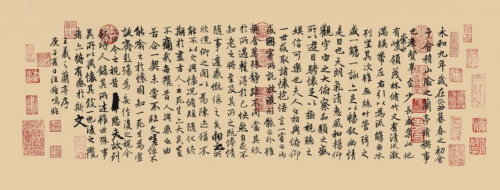 永和九年歲在癸丑暮春之初會
于會稽山陰之蘭亭脩稧事
也羣賢畢至少長咸集此地
有崇山峻領茂林脩竹又有清流激
湍映帶左右引以為流觴曲水
列坐其次雖無絲竹管弦之
盛一觴一詠亦足以暢敘幽情
是日也天朗氣清惠風和暢仰
觀宇宙之大俯察品類之盛
所以遊目騁懷足以極視聽之
娛信可樂也夫人之相與俯仰
一世或取諸懷抱悟言一室之內
或因寄所託放浪形骸之外雖
趣舍萬殊靜躁不同當其欣
於所遇暫得於己怏然自足不
知老之將至及其所之既惓情
隨事遷感慨係之矣向之所
欣俛仰之閒以為陳迹猶不
能不以之興懷況脩短隨化終
期於盡古人云死生亦大矣豈
不痛哉每攬昔人興感之由
若合一契未嘗不臨文嗟悼不
能喻之於懷固知一死生為虛
誕齊彭殤為妄作後之視今
亦由今之視昔悲夫故列
敘時人錄其所述雖世殊事
異所以興懷其致一也後之攬
者亦將有感於斯文
王羲之蘭亭序
庚寅夏日